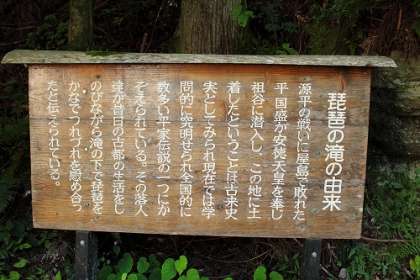 琵琶の滝の由来
源平の戦いに屋島で敗れた
平国盛が安徳天皇を奉じ
祖谷に潜入し、この地に土
着したということは古来史
実としてみられ現在では学
問的に究明せられ全国的に
数多い平家伝説の一つにか
ぞえられている。その落人
達が昔日の古都の生活をし
のびながら滝の下で琵琶を
かなでつれづれを慰め合っ
たと伝えられている。